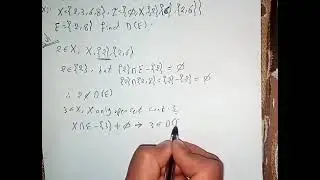 X: X={2,3,6,8}, τ={∅,X,{2},{6},{2,6}}
E={2,8} find D(E)
2∈X, X,{2},{2,6}
2∈{2}, but {2}∩E-{2}=∅
{2}∩{2,8}-{2}={2}-{2}=∅
∴ 2∉D(E)
3∈X, X only open set cont. 3
X∩E-{3}≠∅ → 3∈D(